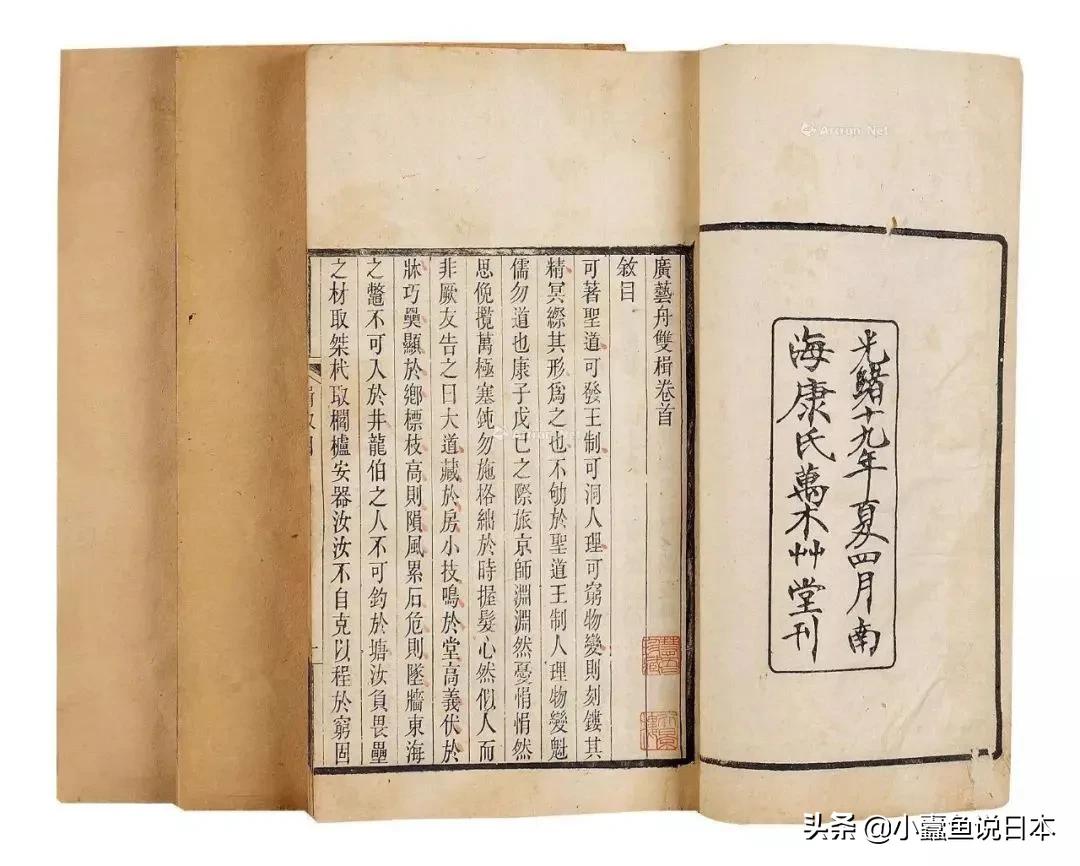 光緒十九年夏四月南
海康氏萬木艸堂刊
廣藝舟雙楫卷首
敘目
可著聖道可發王制可洞人理可窮物變則刻鏤其
精冥縩其形爲之也不劬於聖道王制人理物變魁
儒勿道也康子戊己之際旅京師淵淵然憂悁悁然
思俛攬萬極塞鈍勿施格絀於時握髮心然似人而
非厥友告之曰大道藏於房小技鳴於堂高義伏於
牀巧奰顯於鄉標枝高則隕風累石危則墜牆東海
之鼈不可入於井龍伯之人不可釣於塘汝負畏壘
之材取桀杙取櫩櫨安器汝汝不自克以程於窮固
Artron.Net
头条 @小蠹鱼说日本